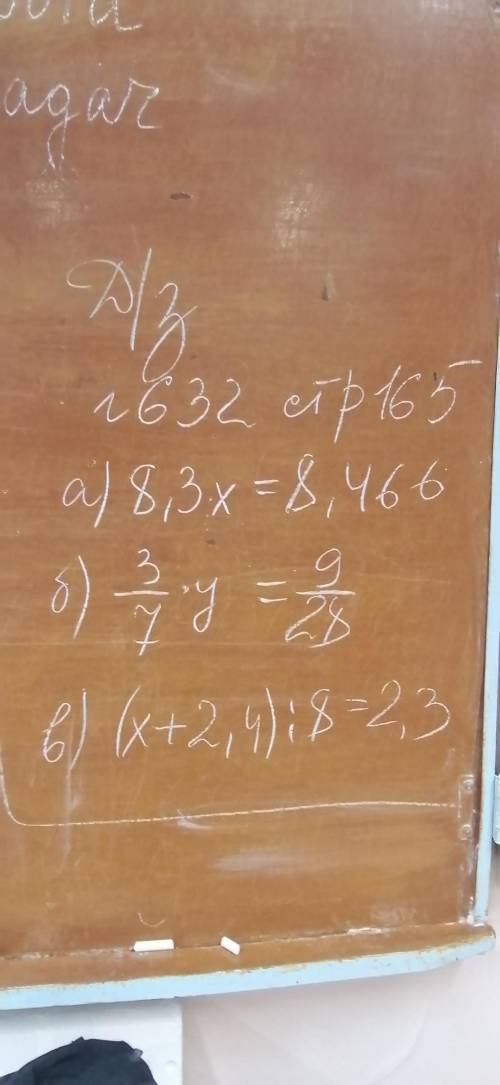 Д/з
№632 стр165
а) 8,3x = 8,466
б) 3/7 · y = 9/28
в) (x+2,4):8=2,3